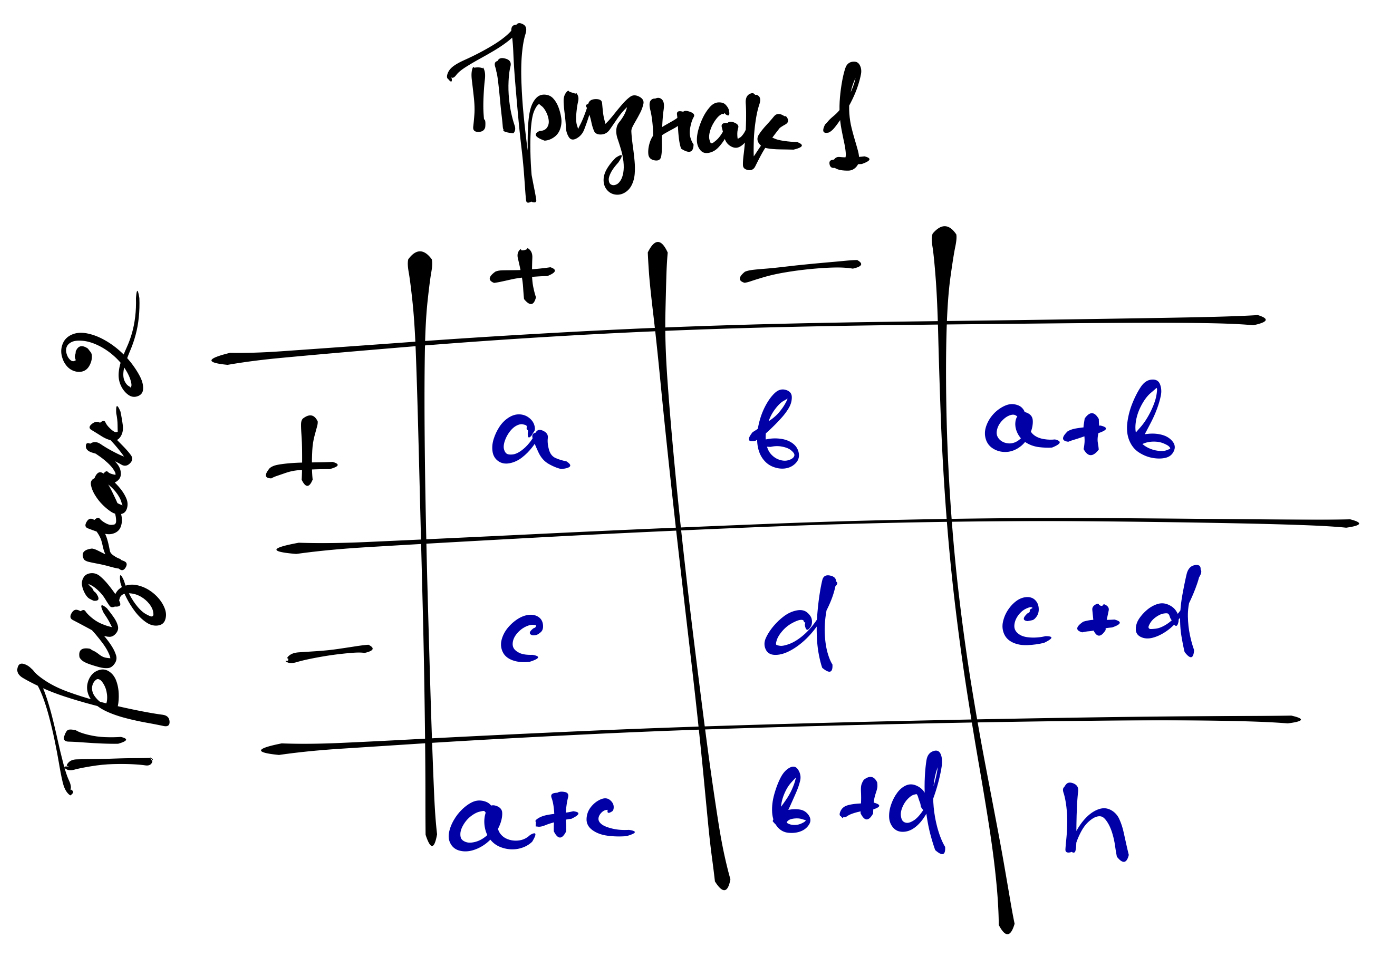 Признак 1
+ —
Признак 2
+ a b a+b
— c d c+d
a+c b+d n